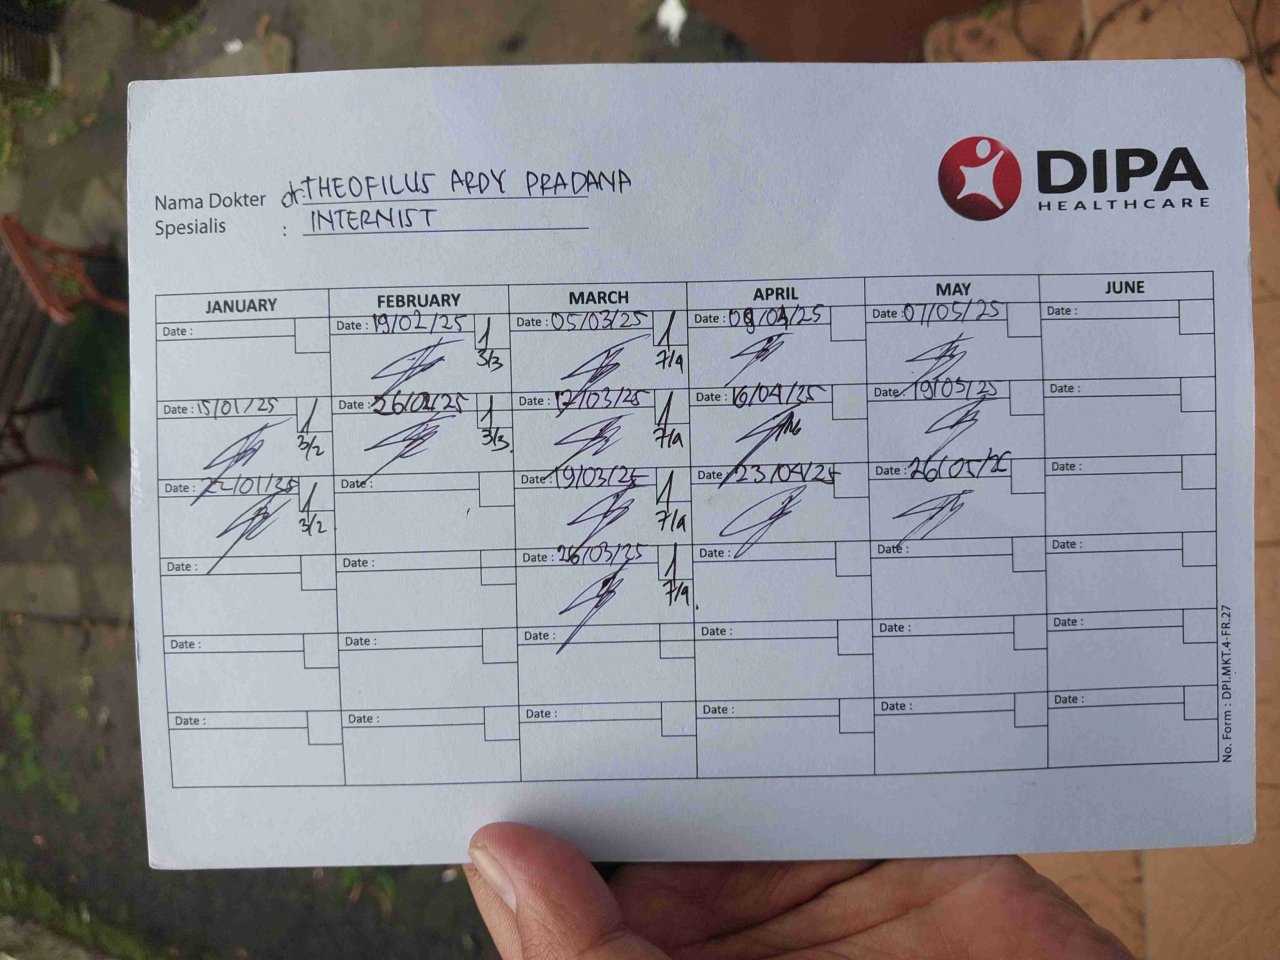 DIPA
HEALTHCARE
Nama Dokter dr. THEOFILUS ARDY PRADANA
Spesialis : INTERNIST
JANUARY FEBRUARY MARCH APRIL MAY JUNE
Date : Date : 19/02/25 Date : 05/03/25 Date : 09/04/25 Date : 07/05/25 Date :
3/3 7/4
Date : 15/01/25 Date : 26/02/25 Date : 12/03/25 Date : 16/04/25 Date : 19/05/25 Date :
3/2 3/3 7/4
Date : 22/01/25 Date : Date : 19/03/25 Date : 23/04/25 Date : 26/05/25 Date :
3/2 7/4
Date : Date : Date : 26/03/25 Date : Date : Date :
7/4
Date : Date : Date : Date : Date : Date :
Date : Date : Date : Date : Date : Date :
No. Form : DPI.MKT.4-FR.27